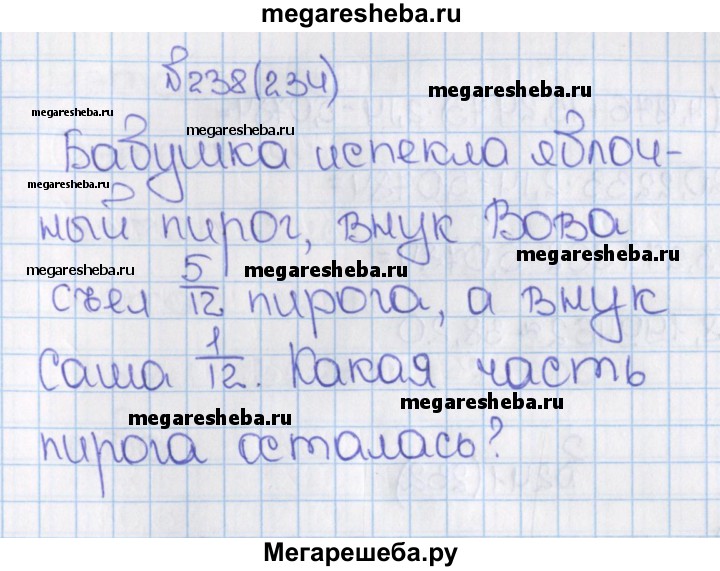 megaresheba.ru
№238(234)
megaresheba.ru
megaresheba.ru
megaresheba.ru
Бабушка испекла яблоч-
megaresheba.ru
ный пирог, внук Вова
megaresheba.ru
megaresheba.ru
megaresheba.ru
съел 5/12 пирога, а внук
Саша 1/12. Какая часть
megaresheba.ru
megaresheba.ru
пирога осталась?
Мегарешеба.ру